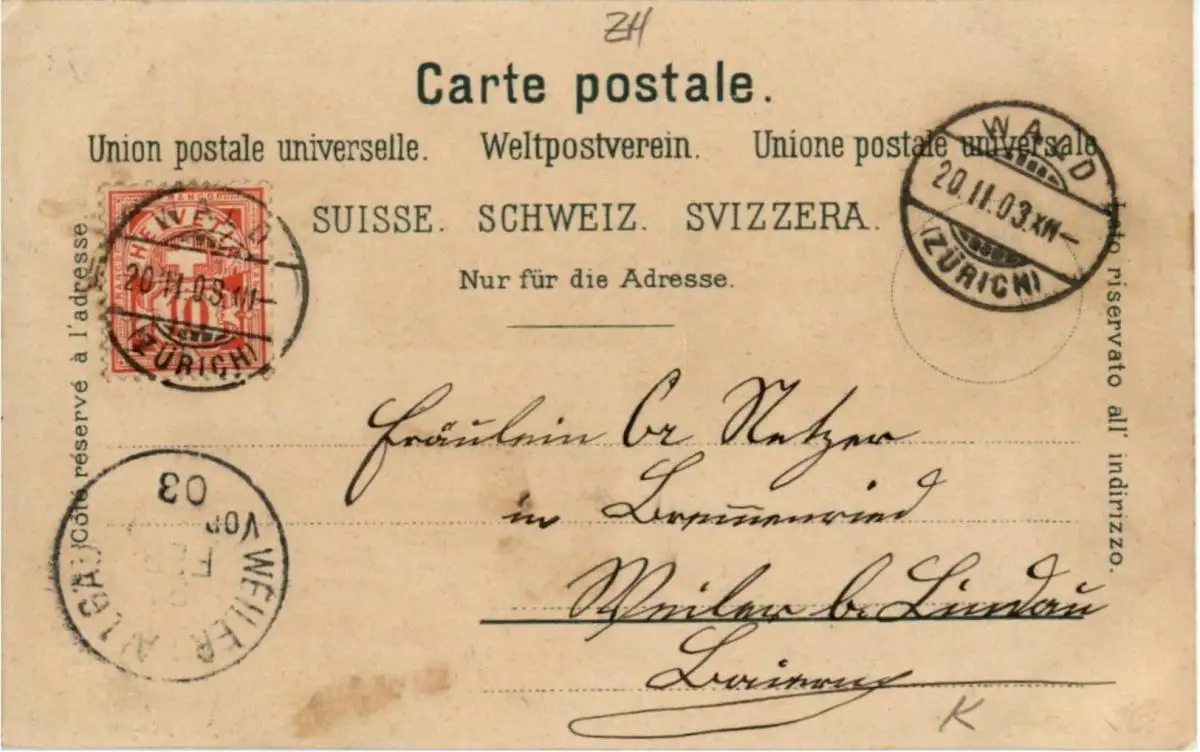 ZH
Carte postale.
Union postale universelle. Weltpostverein. Unione postale universale
SUISSE. SCHWEIZ. SVIZZERA.
Nur für die Adresse.
Côté réservé à l'adresse
Lato riservato all' indirizzo.
HELVETIA
10
WALD
20.II.03.XII–
(ZÜRICH)
WALD
20.II.03.XII–
(ZÜRICH)
Fräulein Cr Netzer
in Bremenried
Weiler b. Lindau
Baiern
WEILER
VOR
FEB
03
K